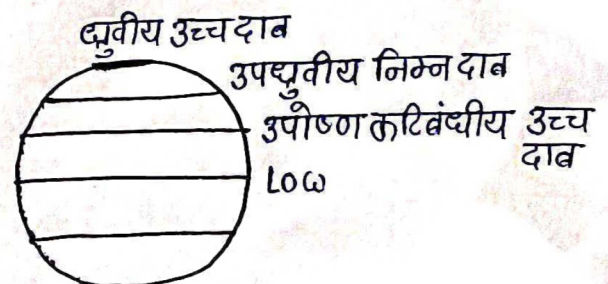 ध्रुवीय उच्च दाब
उपध्रुवीय निम्न दाब
उपोष्ण कटिबंधीय उच्च
दाब
LOW